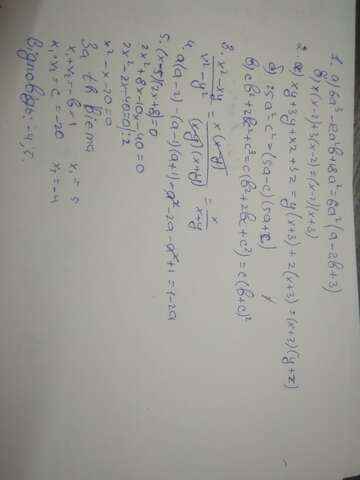 1. а) 6a³-12a²b+18a²=6a²(a-2b+3)
б) x(x-2)+3(x-2)=(x-2)(x+3)
2. а) xy+3y+xz+3z=y(x+3)+z(x+3)=(x+3)(y+z)
б) 25a²-c²=(5a-c)(5a+c)
в) cb²+2bc²+c³=c(b²+2bc+c²)=c(b+c)²
3. x²-xy = x(x-y) = x
x²-y² (x-y)(x+y) x+y
4. a(a-2)-(a-1)(a+1)=a²-2a-a²+1=1-2a
5. (x-5)(2x+8)=0
2x²+8x-10x-40=0
2x²-2x-40=0 |:2
x²-x-20=0
За т. Вієта
x₁+x₂=-b=1 x₁=5
x₁·x₂=c=-20 x₂=-4
Відповідь: -4; 5.